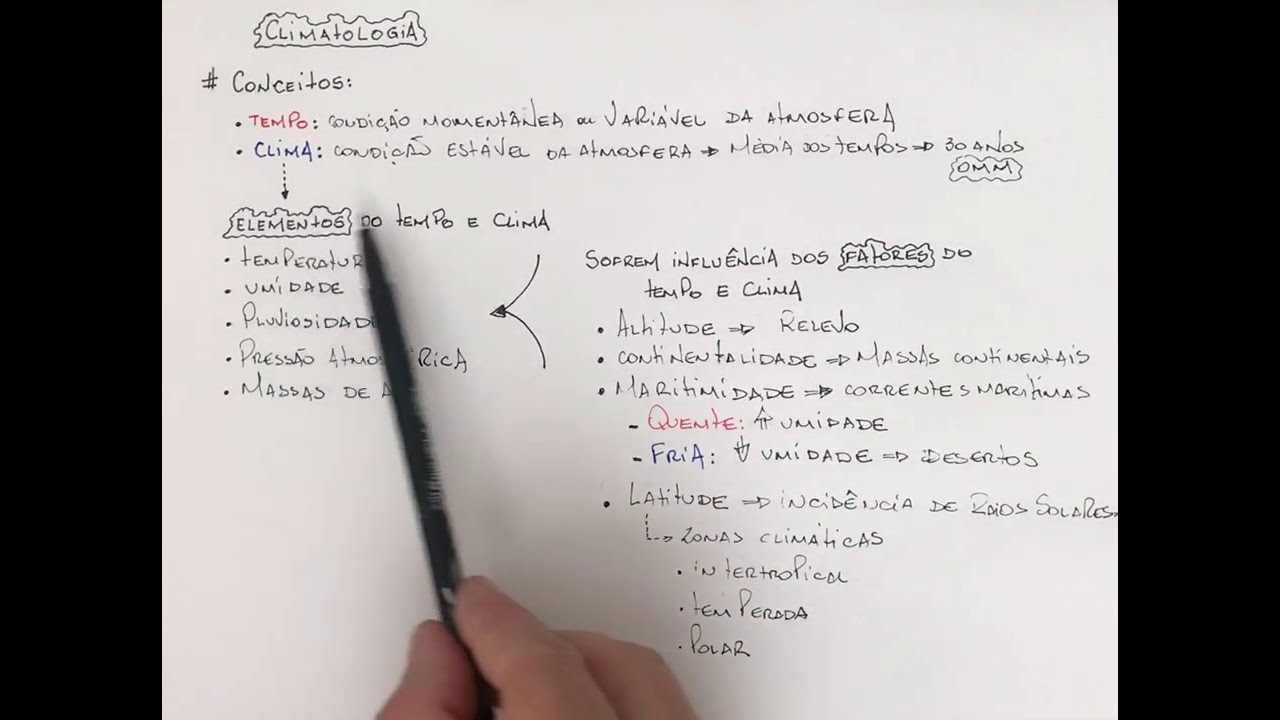 CLIMATOLOGIA
# CONCEITOS:
• TEMPO: CONDIÇÃO MOMENTÂNEA OU VARIÁVEL DA ATMOSFERA
• CLIMA: CONDIÇÃO ESTÁVEL DA ATMOSFERA ⇒ MÉDIA DOS TEMPOS ⇒ 30 ANOS
OMM
ELEMENTOS DO TEMPO E CLIMA
• TEMPERATUR
• UMIDADE
• PLUVIOSIDAD
• PRESSÃO ATMOSFÉRICA
• MASSAS DE A
SOFREM INFLUÊNCIA DOS FATORES DO
TEMPO E CLIMA
• ALTITUDE ⇒ RELEVO
• CONTINENTALIDADE ⇒ MASSAS CONTINENTAIS
• MARITIMIDADE ⇒ CORRENTES MARÍTIMAS
- QUENTE: ⇑ UMIDADE
- FRIA: ⇓ UMIDADE ⇒ DESERTOS
• LATITUDE ⇒ INCIDÊNCIA DE RAIOS SOLARES
↳ ZONAS CLIMÁTICAS
• INTERTROPICAL
• TEMPERADA
• POLAR